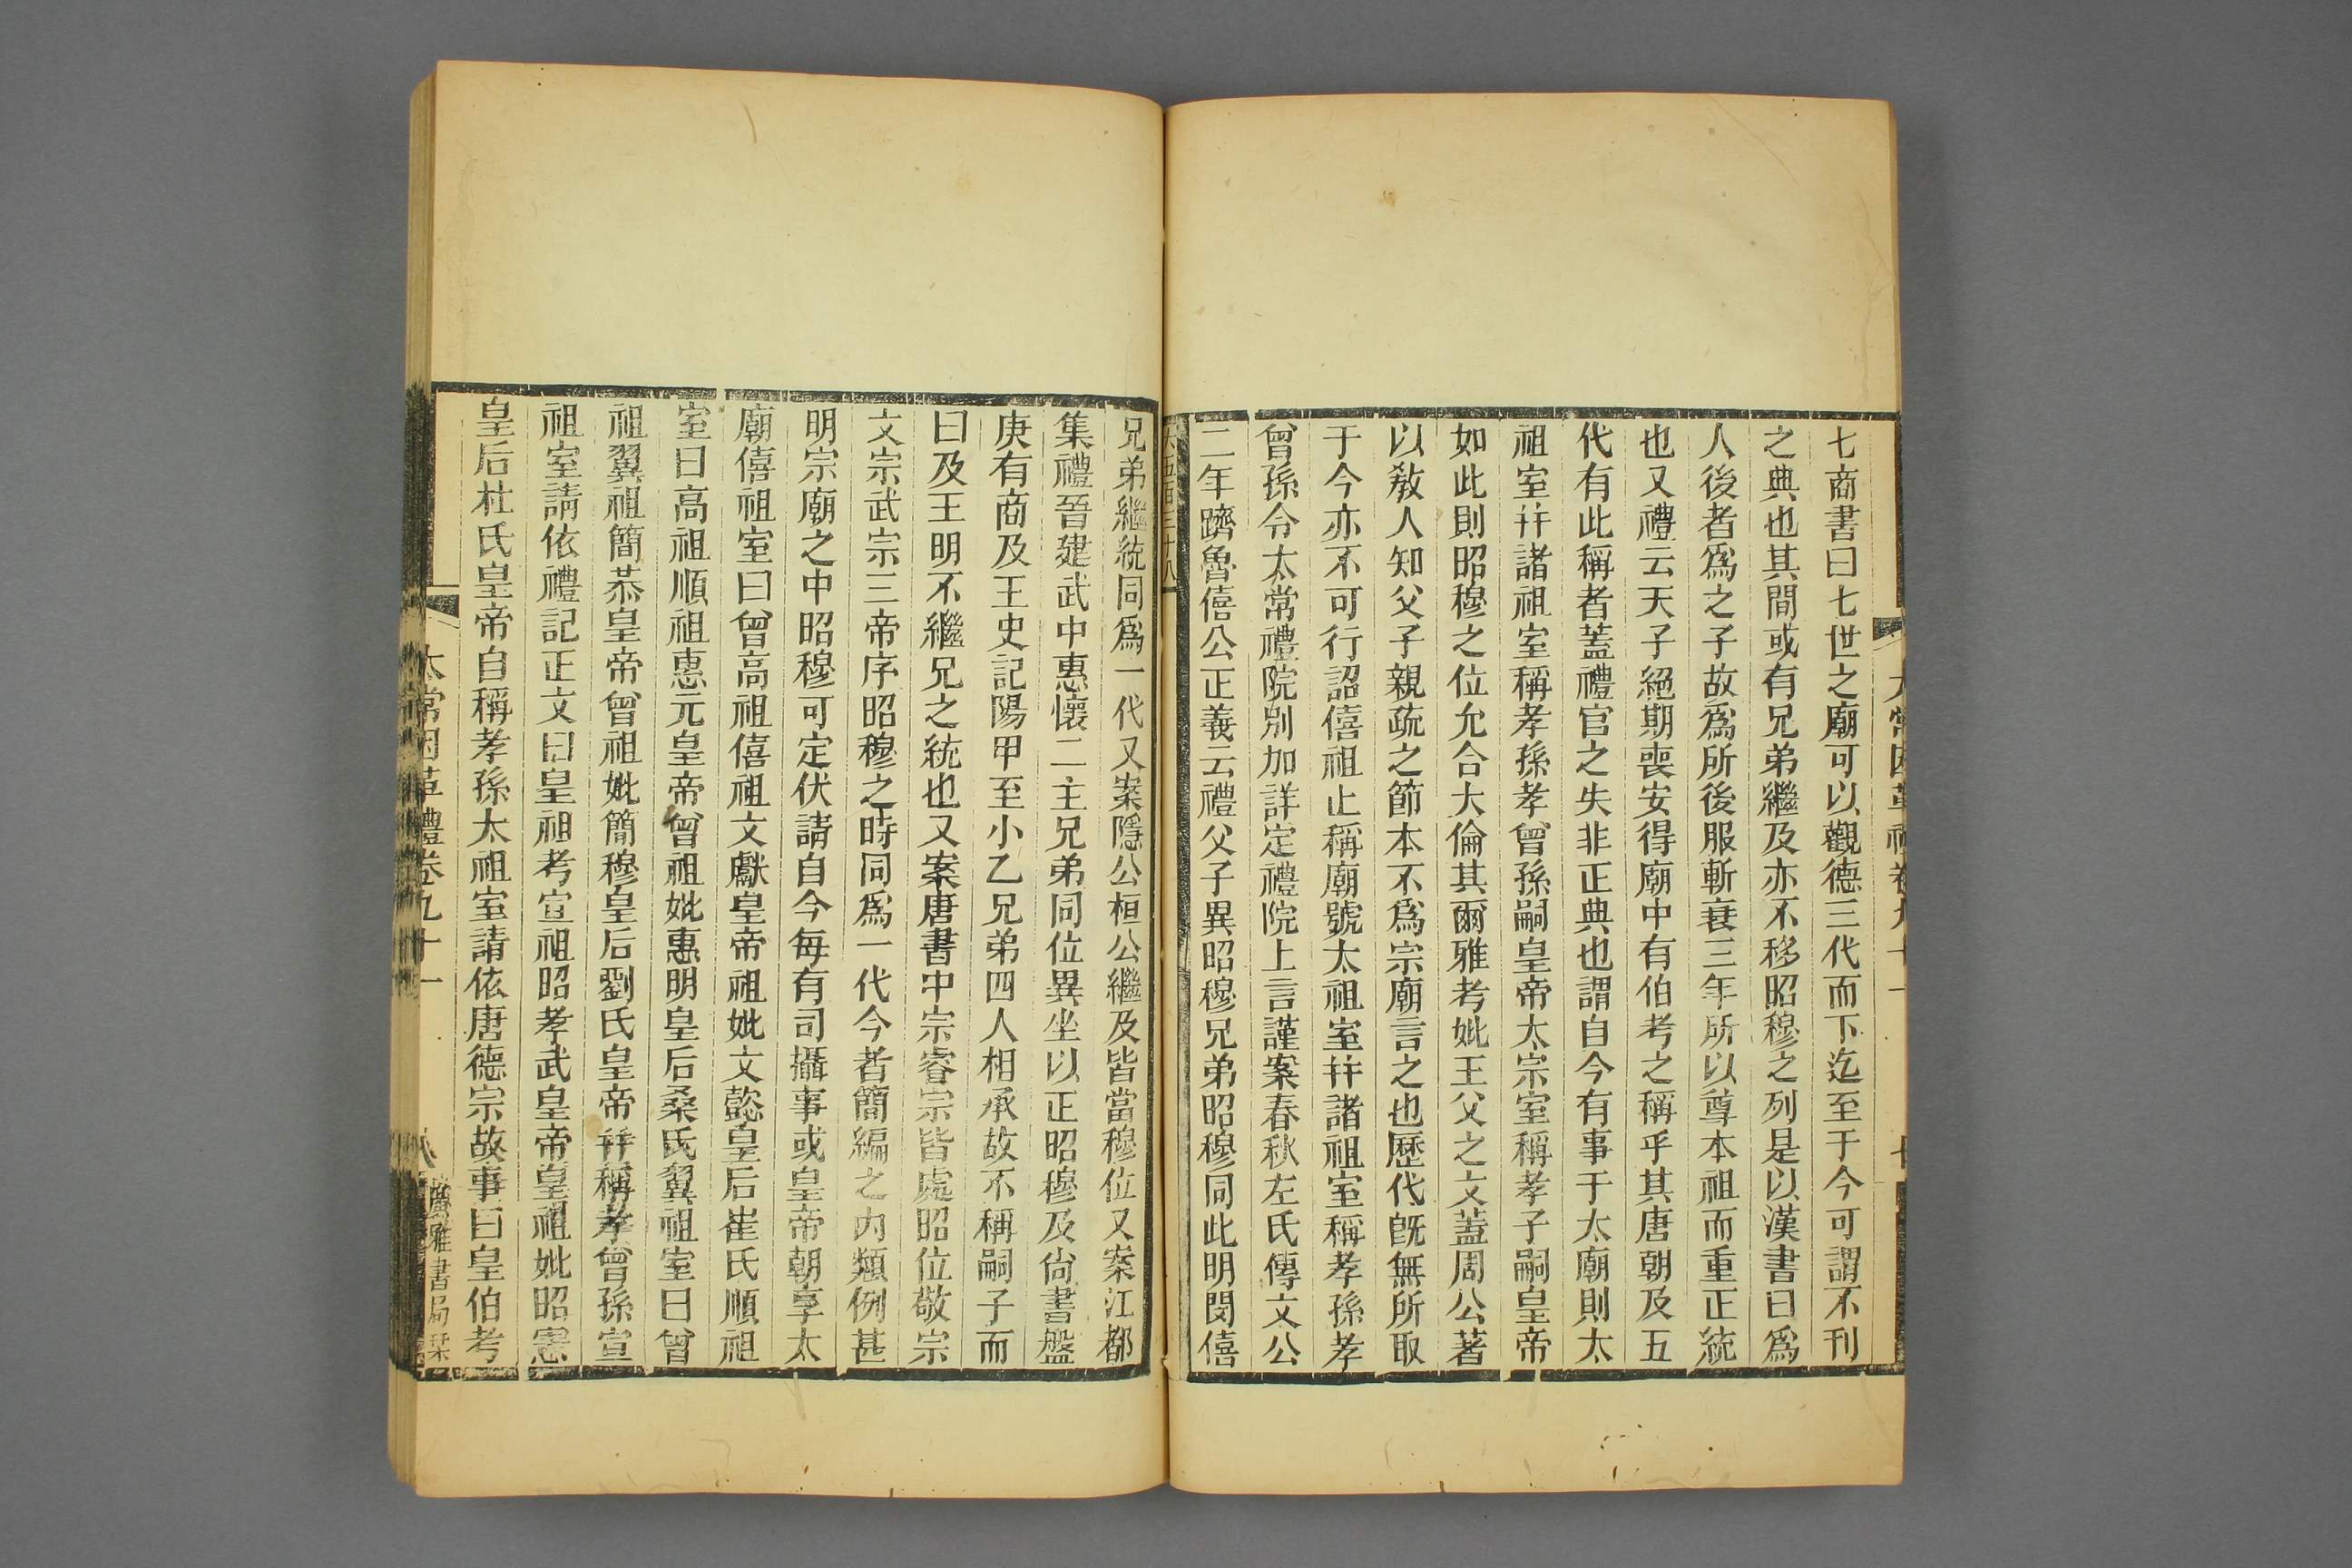 太常因革禮卷九十一
七商書曰七世之廟可以觀德三代而下迄至于今可謂不刊
之典也其間或有兄弟繼及亦不移昭穆之列是以漢書曰爲
人後者爲之子故爲所後服斬衰三年所以尊本祖而重正統
也又禮云天子絕期喪安得廟中有伯考之稱乎其唐朝及五
代有此稱者蓋禮官之失非正典也謂自今有事于太廟則太
祖室幷諸祖室稱孝孫孝曾孫嗣皇帝太宗室稱孝子嗣皇帝
如此則昭穆之位允合大倫其爾雅考妣王父之文蓋周公著
以敎人知父子親疏之節本不爲宗廟言之也歷代旣無所取
于今亦不可行詔僖祖止稱廟號太祖室幷諸祖室稱孝孫孝
曾孫令太常禮院別加詳定禮院上言謹案春秋左氏傳文公
二年躋魯僖公正義云禮父子異昭穆兄弟昭穆同此明閔僖
六五百三十八
兄弟繼統同爲一代又案隱公桓公繼及皆當穆位又案江都
集禮晉建武中惠懷二主兄弟同位異坐以正昭穆及尙書盤
庚有商及王史記陽甲至小乙兄弟四人相承故不稱嗣子而
曰及王明不繼兄之統也又案唐書中宗睿宗皆處昭位敬宗
文宗武宗三帝序昭穆之時同爲一代今者簡編之內類例甚
明宗廟之中昭穆可定伏請自今每有司攝事或皇帝朝享太
廟僖祖室曰曾高祖僖祖文獻皇帝祖妣文懿皇后崔氏順祖
室曰高祖順祖惠元皇帝曾祖妣惠明皇后桑氏翼祖室曰曾
祖翼祖簡恭皇帝曾祖妣簡穆皇后劉氏皇帝幷稱孝曾孫宣
祖室請依禮記正文曰皇祖考宣祖昭孝武皇帝皇祖妣昭憲
皇后杜氏皇帝自稱孝孫太祖室請依唐德宗故事曰皇伯考
太常因革禮卷九十一
廣雅書局栞